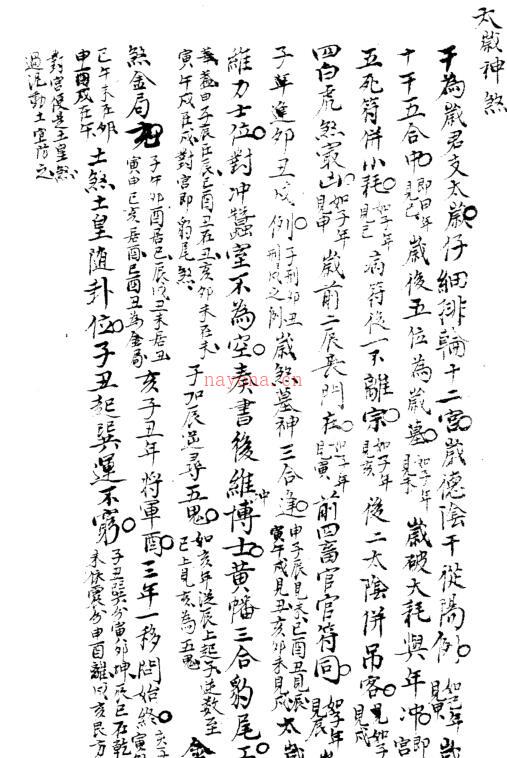 太歲神煞
干為歲君支太歲仔細排輪十二宮歲德陰干從陽例如己年見甲歲
十干五合中即甲年見己歲後五位為歲墓如子年見未歲破大耗與年冲即宮
五死符併小耗如子年見巳病符後一不離宗如子年見亥後二太陰併吊客如子年見戌
四白虎煞最凶如子年見申歲前二辰喪門在如子年見寅前四畜官官符同如子年見辰
子年進卯丑戌例子刑卯丑刑戌之例歲煞墓神三合逢申子辰見未巳酉丑見辰寅午戌見丑亥卯未見戌太歲
維力士位對冲蠶室不為空奏書後維冲博士黃幡三合豹尾
華蓋申子辰在辰巳酉丑在丑亥卯未在未寅午戌在戌對宮即豹尾煞子加辰逆尋五鬼如亥年從辰上起子逆数至巳上見亥為五鬼金
煞金局子午卯酉居巳辰戌丑未居丑寅申巳亥居酉巳酉丑為金局亥子丑年將軍酉三年一移問始終亥子寅卯
巳午未在卯申酉戌在午土煞土皇随卦位子丑起巽運不窮子丑巽分寅卯坤辰巳在乾未候震分申酉離戌亥艮方
對宮便是土皇煞
過泥動土宜防之
nayona.cn